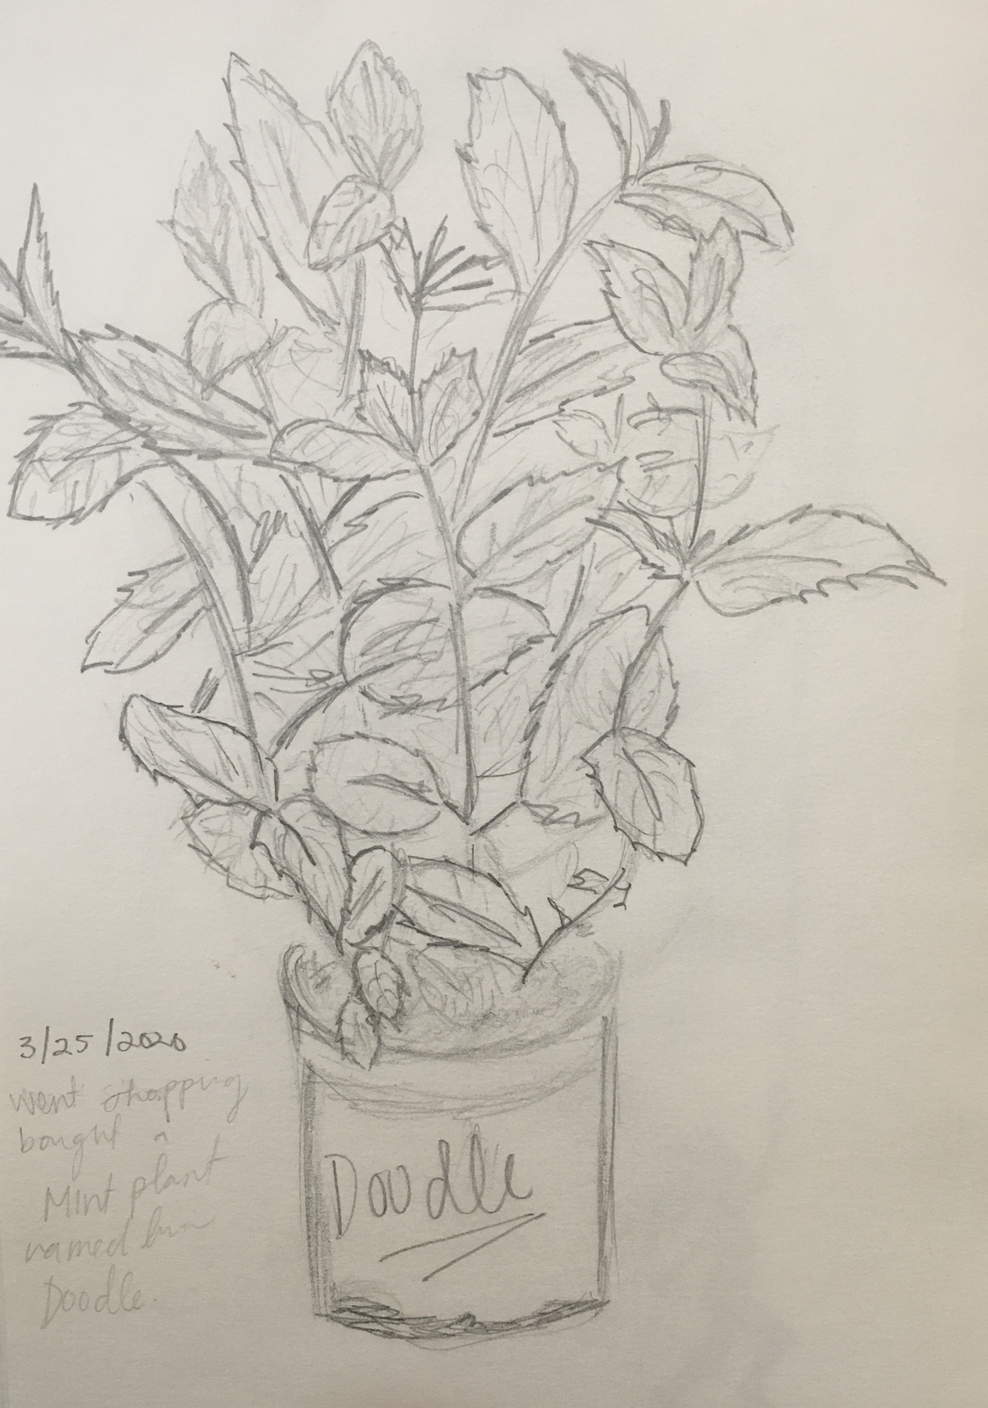 3/25/2020
went shopping
bought a
Mint plant
named him
Doodle.
Doodle